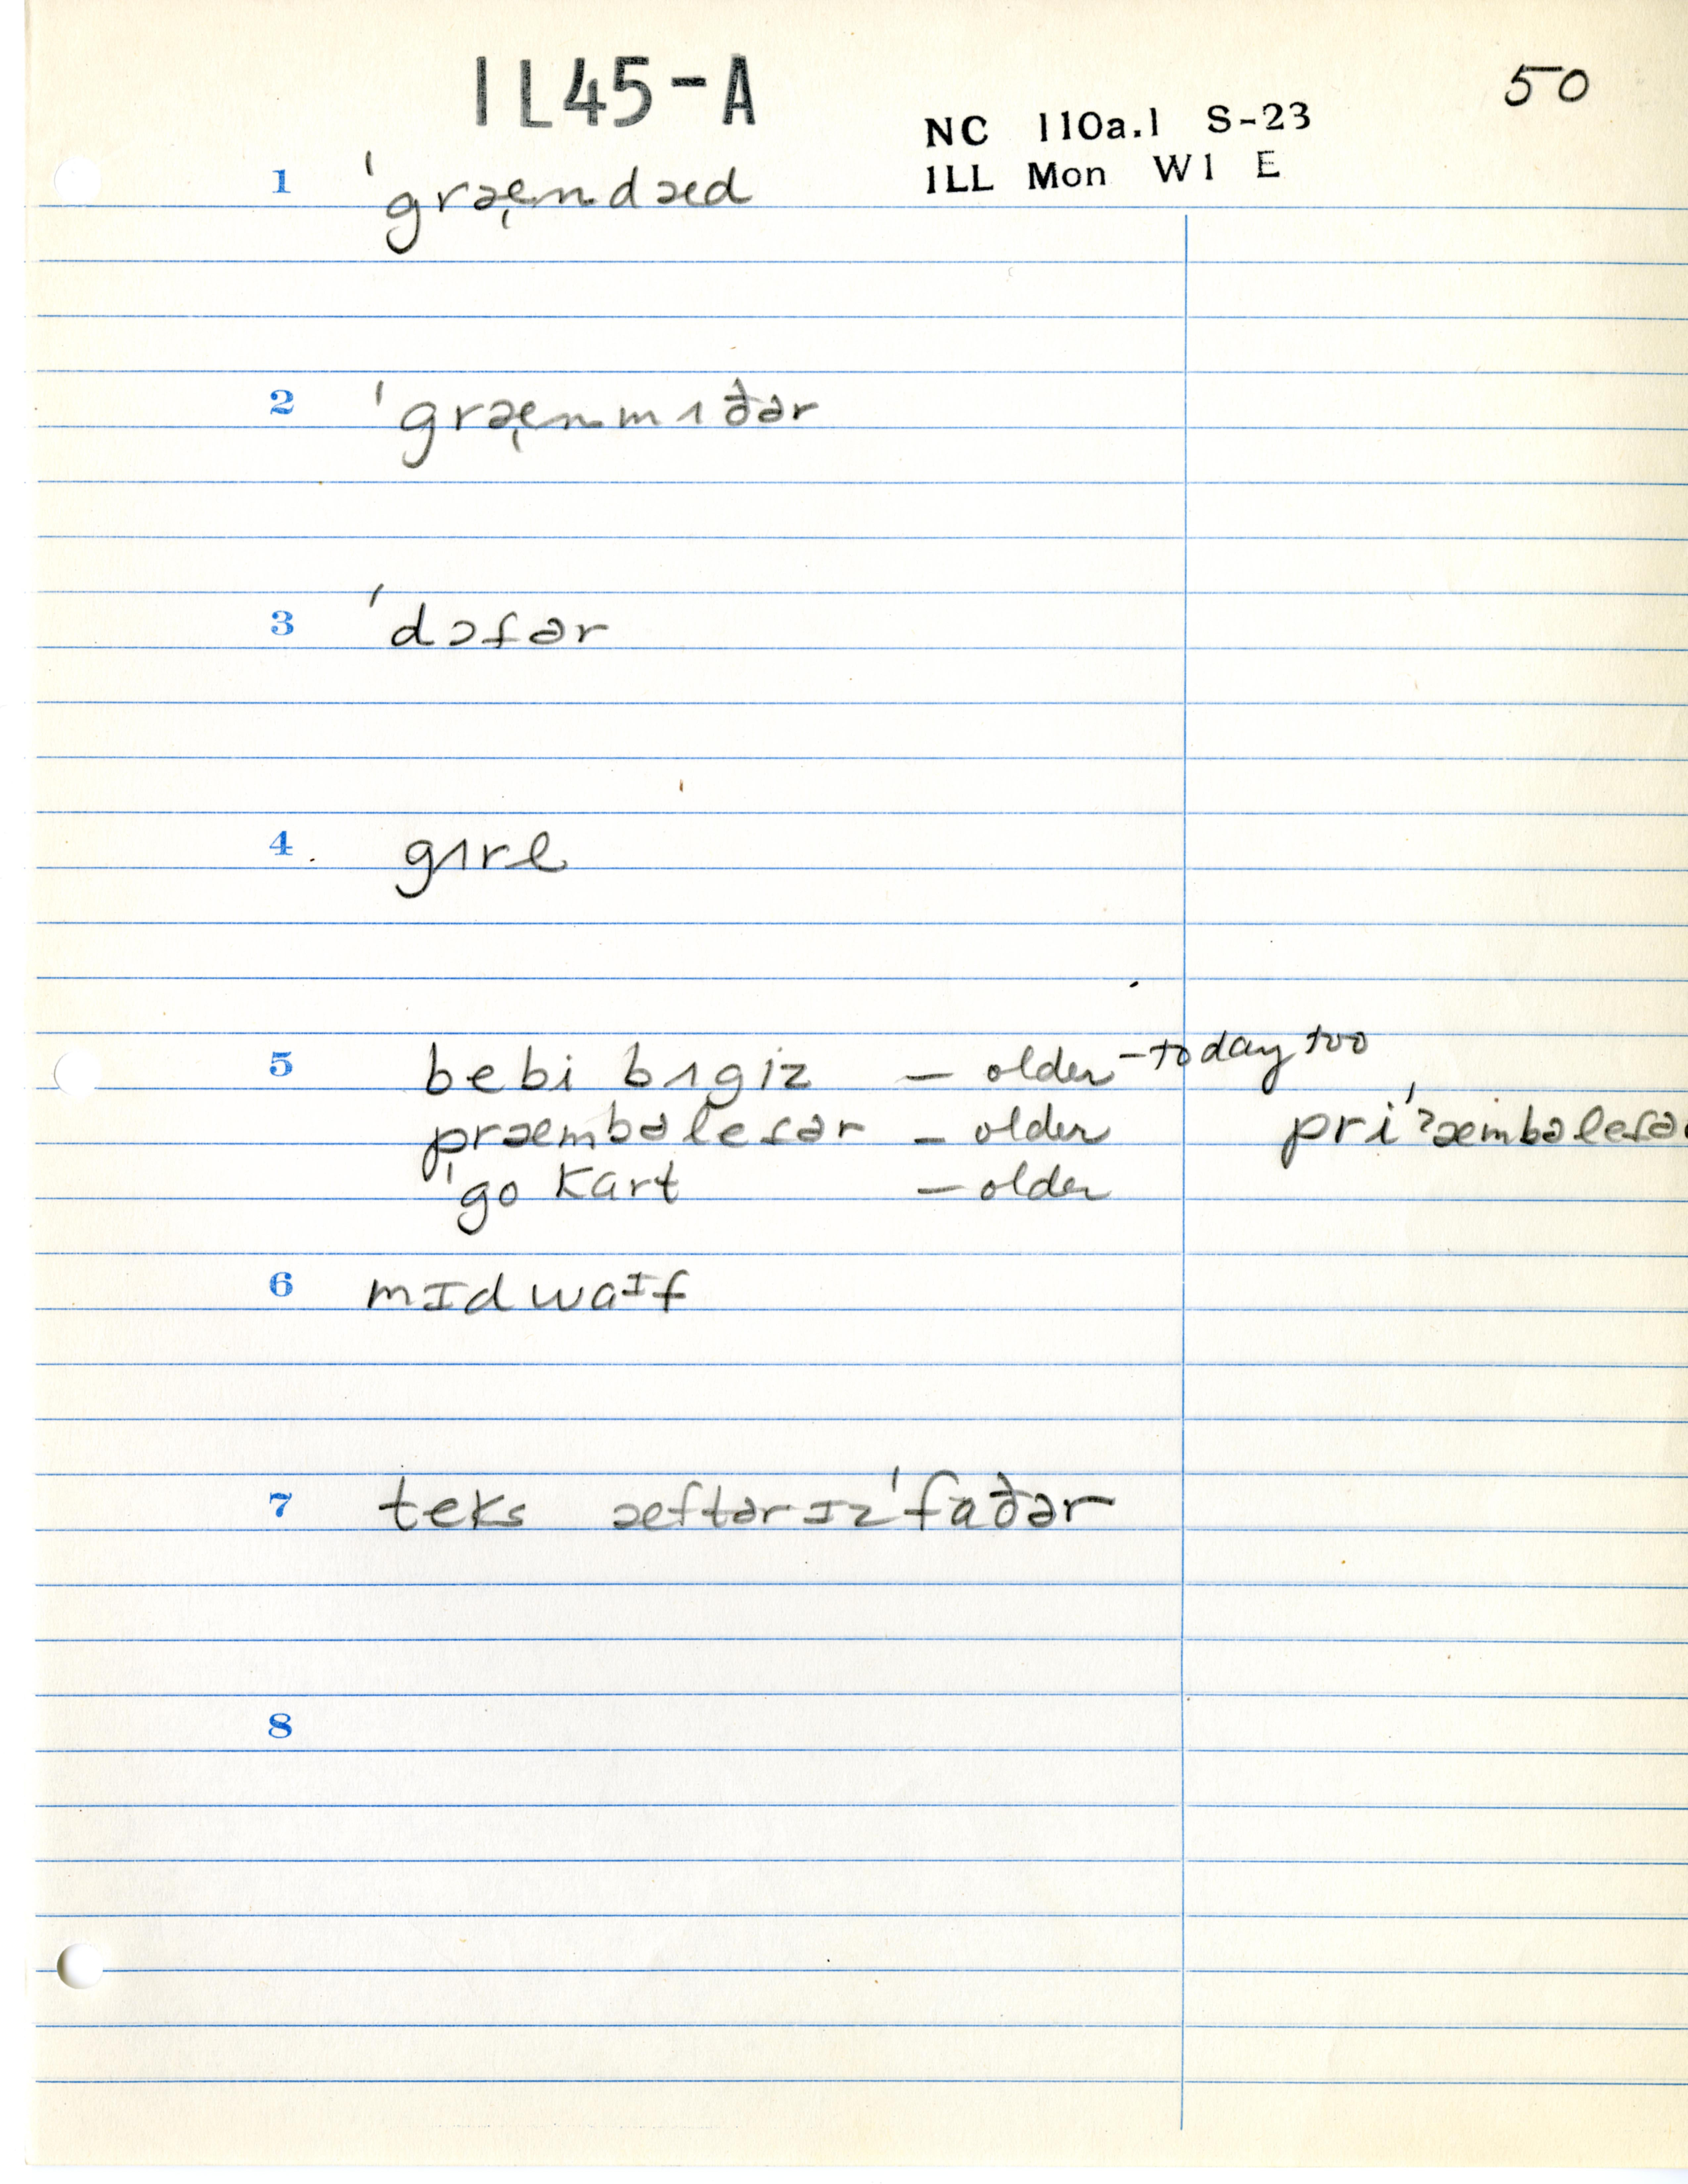 IL45-A
50
NC 110a.1 S-23
ILL Mon W1 E
1 ˈgræ̜ndæd
2 ˈgræ̜nmɿðər
3 ˈdɔtər
4 gɿrl
5 bebi bɿgiz – older – today too
præmbəletər – older priˈʔæmbəletə
ˈgo kart – older
6 mɪdwaᶦf
7 teks æftərɪzˈfaðər
8